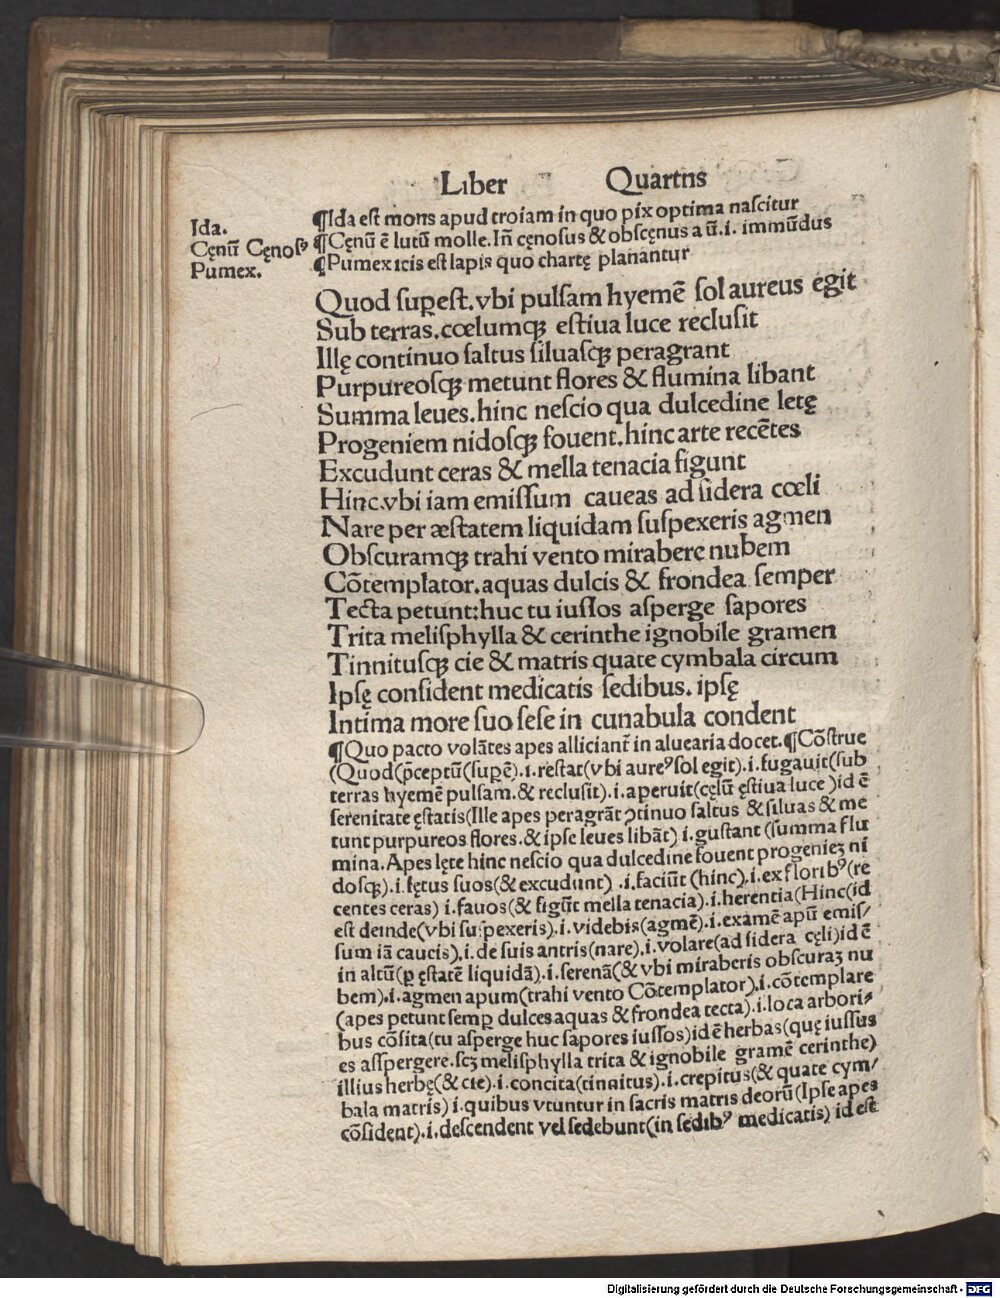 Liber Quartns
Ida.
Cęnū Cęnoſꝰ
Pumex.
¶Ida eſt mons apud troiam in quo pix optima naſcitur
¶Cęnū ē lutū molle. Iñ cęnoſus & obſcęnus a ū .i. immūdus
¶Pumex icis eſt lapis quo chartę planantur
Quod ſuꝑeſt. vbi pulſam hyemē ſol aureus egit
Sub terras. cœlumqꝫ eſtiua luce recluſit
Illę continuo ſaltus ſiluaſqꝫ peragrant
Purpureoſqꝫ metunt flores & flumina libant
Summa leues. hinc neſcio qua dulcedine letę
Progeniem nidoſqꝫ fouent. hinc arte recētes
Excudunt ceras & mella tenacia figunt
Hinc vbi iam emiſſum caueas ad ſidera cœli
Nare per æſtatem liquidam ſuſpexeris agmen
Obſcuramqꝫ trahi vento mirabere nubem
Cōtemplator. aquas dulcis & frondea ſemper
Tecta petunt: huc tu iuſſos aſperge ſapores
Trita meliſphylla & cerinthe ignobile gramen
Tinnituſqꝫ cie & matris quate cymbala circum
Ipſę conſident medicatis ſedibus. ipſę
Intima more ſuo ſeſe in cunabula condent
¶Quo pacto volātes apes alliciant̄ in aluearia docet. ¶Cōſtrue
(Quod(p̄ceptū(ſupē). i. reſtat(vbi aureꝰ ſol egit). i. fugauit(ſub
terras hyemē pulſam. & recluſit). i. aperuit(cęlū ęſtiua luce )id ē
ſerenitate ęſtatis(Ille apes peragrāt ↄtinuo ſaltus & ſiluas & me
tunt purpureos flores. & ipſe leues libāt) i. guſtant (ſumma flu
mina. Apes lęte hinc neſcio qua dulcedine fouent progenieꝫ ni
doſqꝫ). i. fętus ſuos(& excudunt) .i. faciūt (hinc). i. ex floribꝰ(re
centes ceras) i. fauos(& figūt mella tenacia). i. herentia(Hinc(id
eſt deinde(vbi ſuſpexeris). i. videbis(agmē). i. examē apū emiſ/
ſum iā caucis), i. de ſuis antris(nare). i. volare(ad ſidera cęli)id ē
in altū(ꝑ ęſtatē liquidā). i. ſerenā(& vbi miraberis obſcuraꝫ nu
bem). i. agmen apum(trahi vento Cōtemplator). i. cōtemplare
(apes petunt ſemꝑ dulces aquas & frondea tecta). i. loca arbori/
bus cōſita(tu aſperge huc ſapores iuſſos)id ē herbas(quę iuſſus
es aſſpergere. ſcꝫ meliſphylla trita & ignobile gramē cerinthe)
illius herbę(& cie). i. concita(tinnitus). i. crepitus(& quate cym/
bala matris) i. quibus vtuntur in ſacris matris deorū(Ipſe apes
cōſident). i. deſcendent vel ſedebunt(in ſedibꝰ medicatis) id eſt
Digitalisierung gefördert durch die Deutsche Forschungsgemeinschaft - DFG